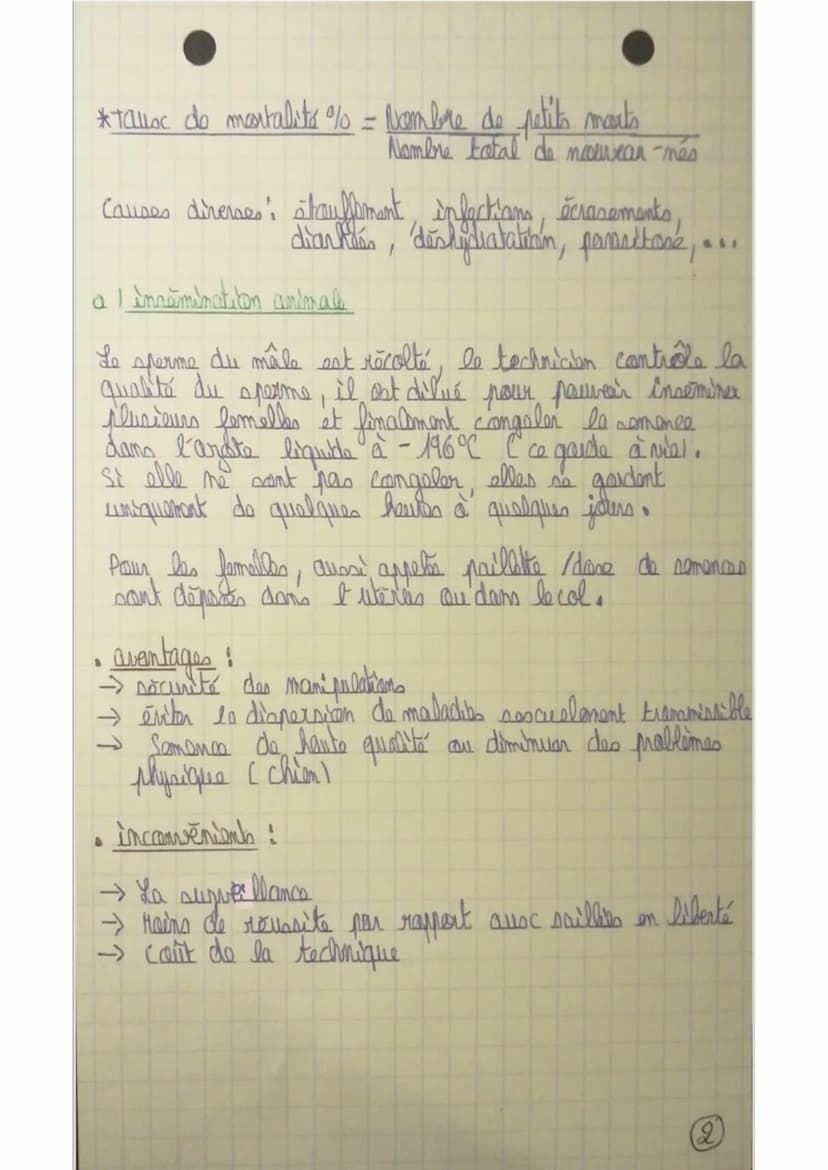 *Taux de mortalité % = Nombre de petits morts
Nombre total de nouveau-nés
Causes diverses : étouffement, infections, écrasements,
diarhées, déshydratation, parasitose, ...
a l insémination animale
Le sperme du mâle est récolté, le technicien contrôle la
qualité du sperme, il est dilué pour pouvoir inséminer
plusieurs femelles et finalement congeler la semence
dans l'azote liquide à -196°C (ce garde à vie).
Si elle ne sont pas congeler, elles se gardent
uniquement de quelques heures à quelques jours.
Pour les femelles, aussi appelée paillette /dose de semences
sont déposés dans l'utérus ou dans le col.
• avantages :
→ sécurité des manipulations
→ éviter la dispersion de maladies sexuelement transmissible
→ Semence de haute qualité ou diminuer des problèmes
physique (chien)
• inconvénients :
→ La surveillance
→ Moins de réussite par rapport aux saillies en liberté
→ Coût de la technique
2